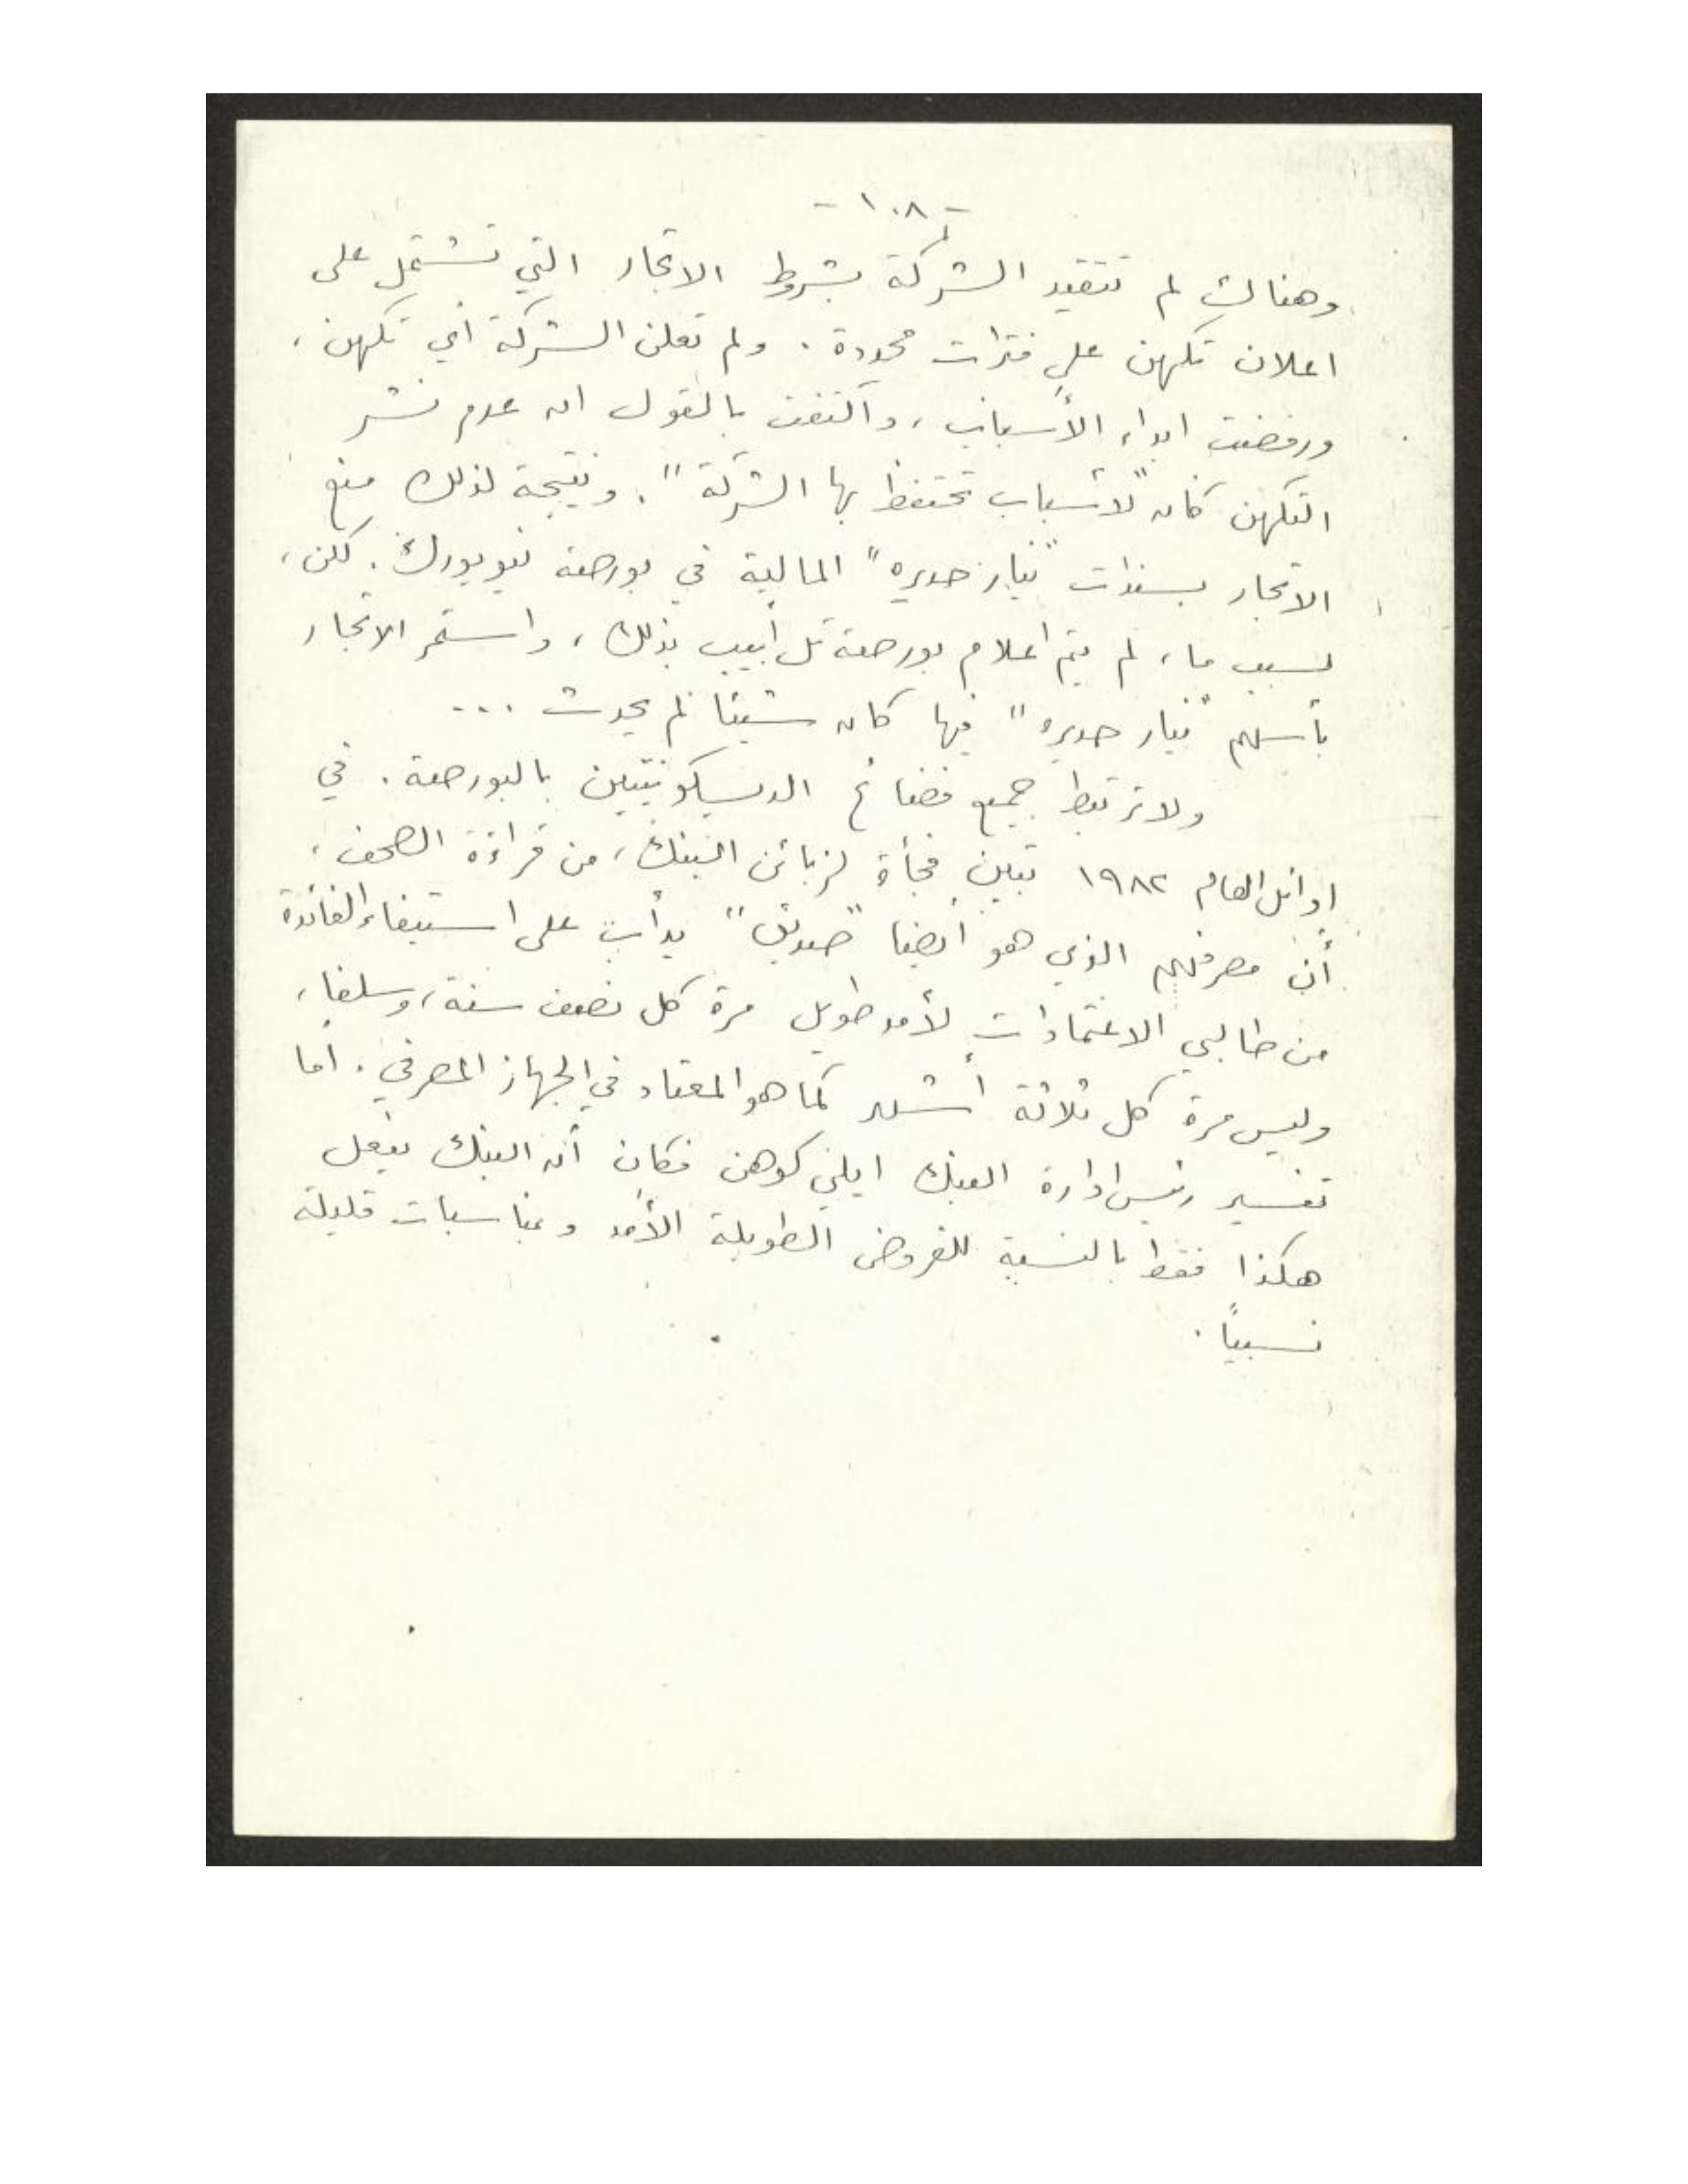 - ١٠٨ -
وهناك لم تتقيد الشركة بشروط الاتجار التي تشتمل على
اعلان تكهن على فترات محددة . ولم تعلن الشركة أي تكهن ،
ورفضت ابداء الأسباب ، واكتفت بالقول ان عدم نشر
التكهن كان "لأسباب تحتفظ بها الشركة" . ونتيجة لذلك منع
الاتجار بسندات "نيار حديره" المالية في بورصة نيويورك . لكن ،
لسبب ما ، لم يتم اعلام بورصة تل أبيب بذلك ، واستمر الاتجار
بأسهم "نيار حديره" فيها كان شيئا لم يحدث ...
ولا ترتبط جميع فضائح الديسكونتيين بالبورصة . في
اوائل العام ١٩٨٢ تبين فجأة لزبائن البنك ، من قراءة الصحف ،
أن مصرفهم الذي هو أيضا "صديق" يدأب على استيفاء الفائدة
من طالبي الاعتمادات لأمد طويل مرة كل نصف سنة ، وسلفا ،
وليس مرة كل ثلاثة أشهر كما هو المعتاد في الجهاز المصرفي . أما
تفسير رئيس ادارة البنك ايلي كوهن فكان أن البنك يفعل
هكذا فقط بالنسبة للقروض الطويلة الأمد وبمناسبات قليلة
نسبياً .